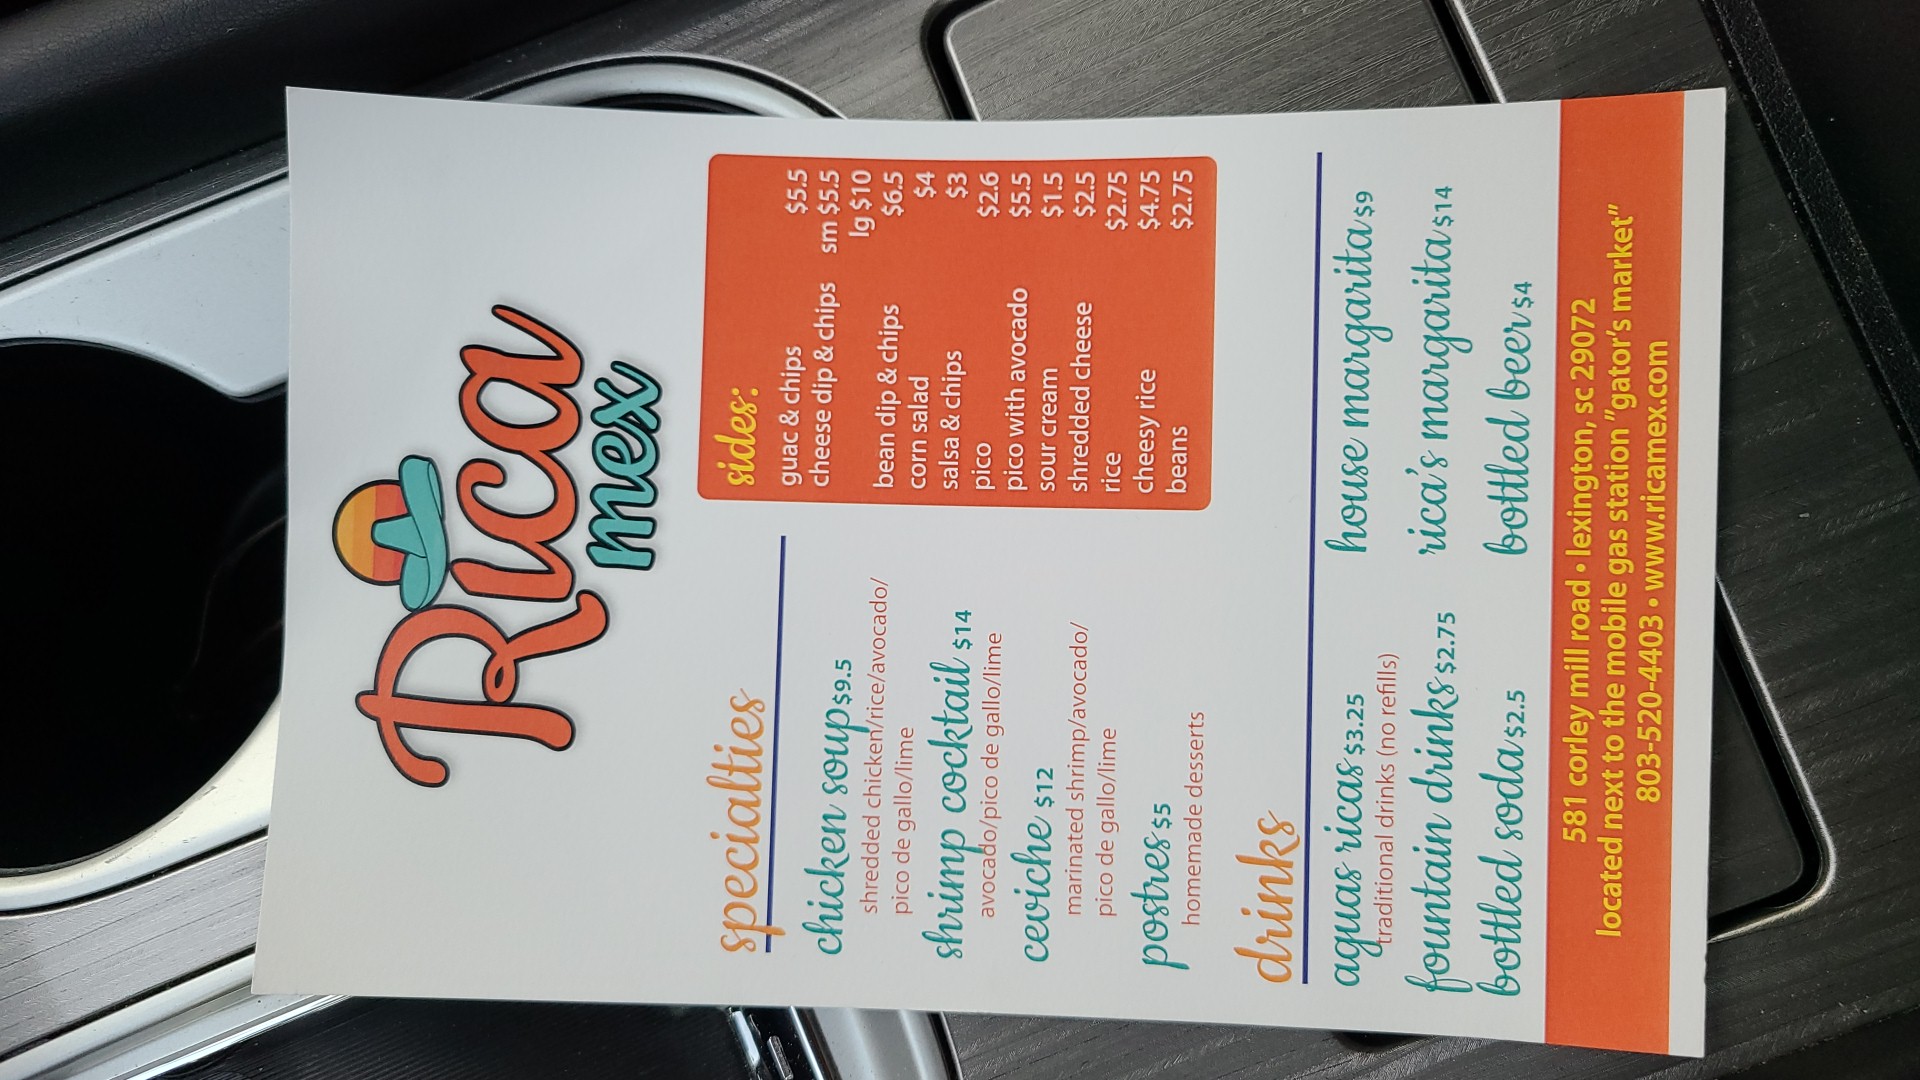 Rica
mex
specialties
chicken soup $9.5
shredded chicken/rice/avocado/
pico de gallo/lime
shrimp cocktail $14
avocado/pico de gallo/lime
ceviche $12
marinated shrimp/avocado/
pico de gallo/lime
postres $5
homemade desserts
sides:
guac & chips $5.5
cheese dip & chips sm $5.5
lg $10
bean dip & chips $6.5
corn salad $4
salsa & chips $3
pico $2.6
pico with avocado $5.5
sour cream $1.5
shredded cheese $2.5
rice $2.75
cheesy rice $4.75
beans $2.75
drinks
aguas ricas $3.25
traditional drinks (no refills)
fountain drinks $2.75
bottled soda $2.5
house margarita $9
rica's margarita $14
bottled beer $4
581 corley mill road • lexington, sc 29072
located next to the mobile gas station "gator's market"
803-520-4403 • www.ricamex.com